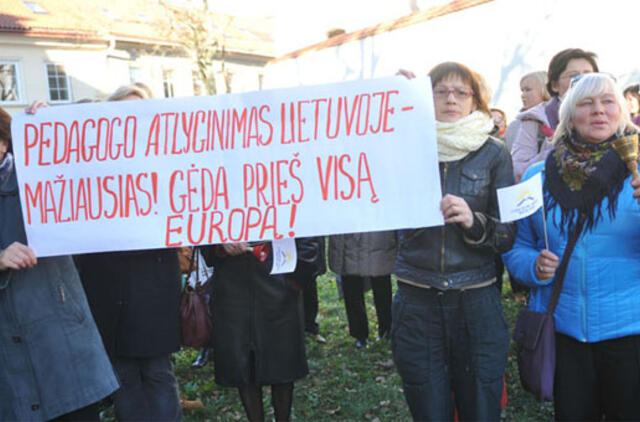 PEDAGOGO ATLYGINIMAS LIETUVOJE-
MAŽIAUSIAS! GĖDA PRIEŠ VISĄ
EUROPĄ!